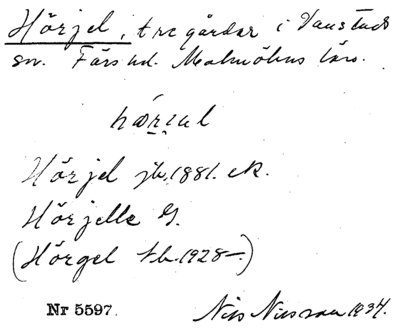 Hörjel, tre gårdar i Vanstads
sn. Färs hd. Malmöhus län.
Hörjel jb. 1881. ek.
Hörjelle G.
(Hörgel tk. 1928-)
Nr 5597.
Nils Nilsson 1934.